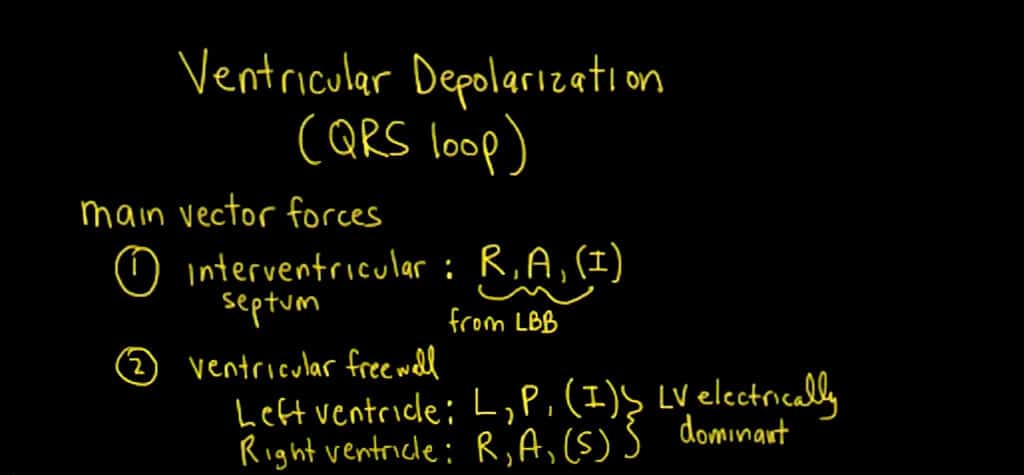 Ventricular Depolarization
(QRS loop)
main vector forces
① interventricular septum : R, A, (I)
from LBB
② ventricular free wall
Left ventricle: L, P, (I) } LV electrically
Right ventricle: R, A, (S) } dominant